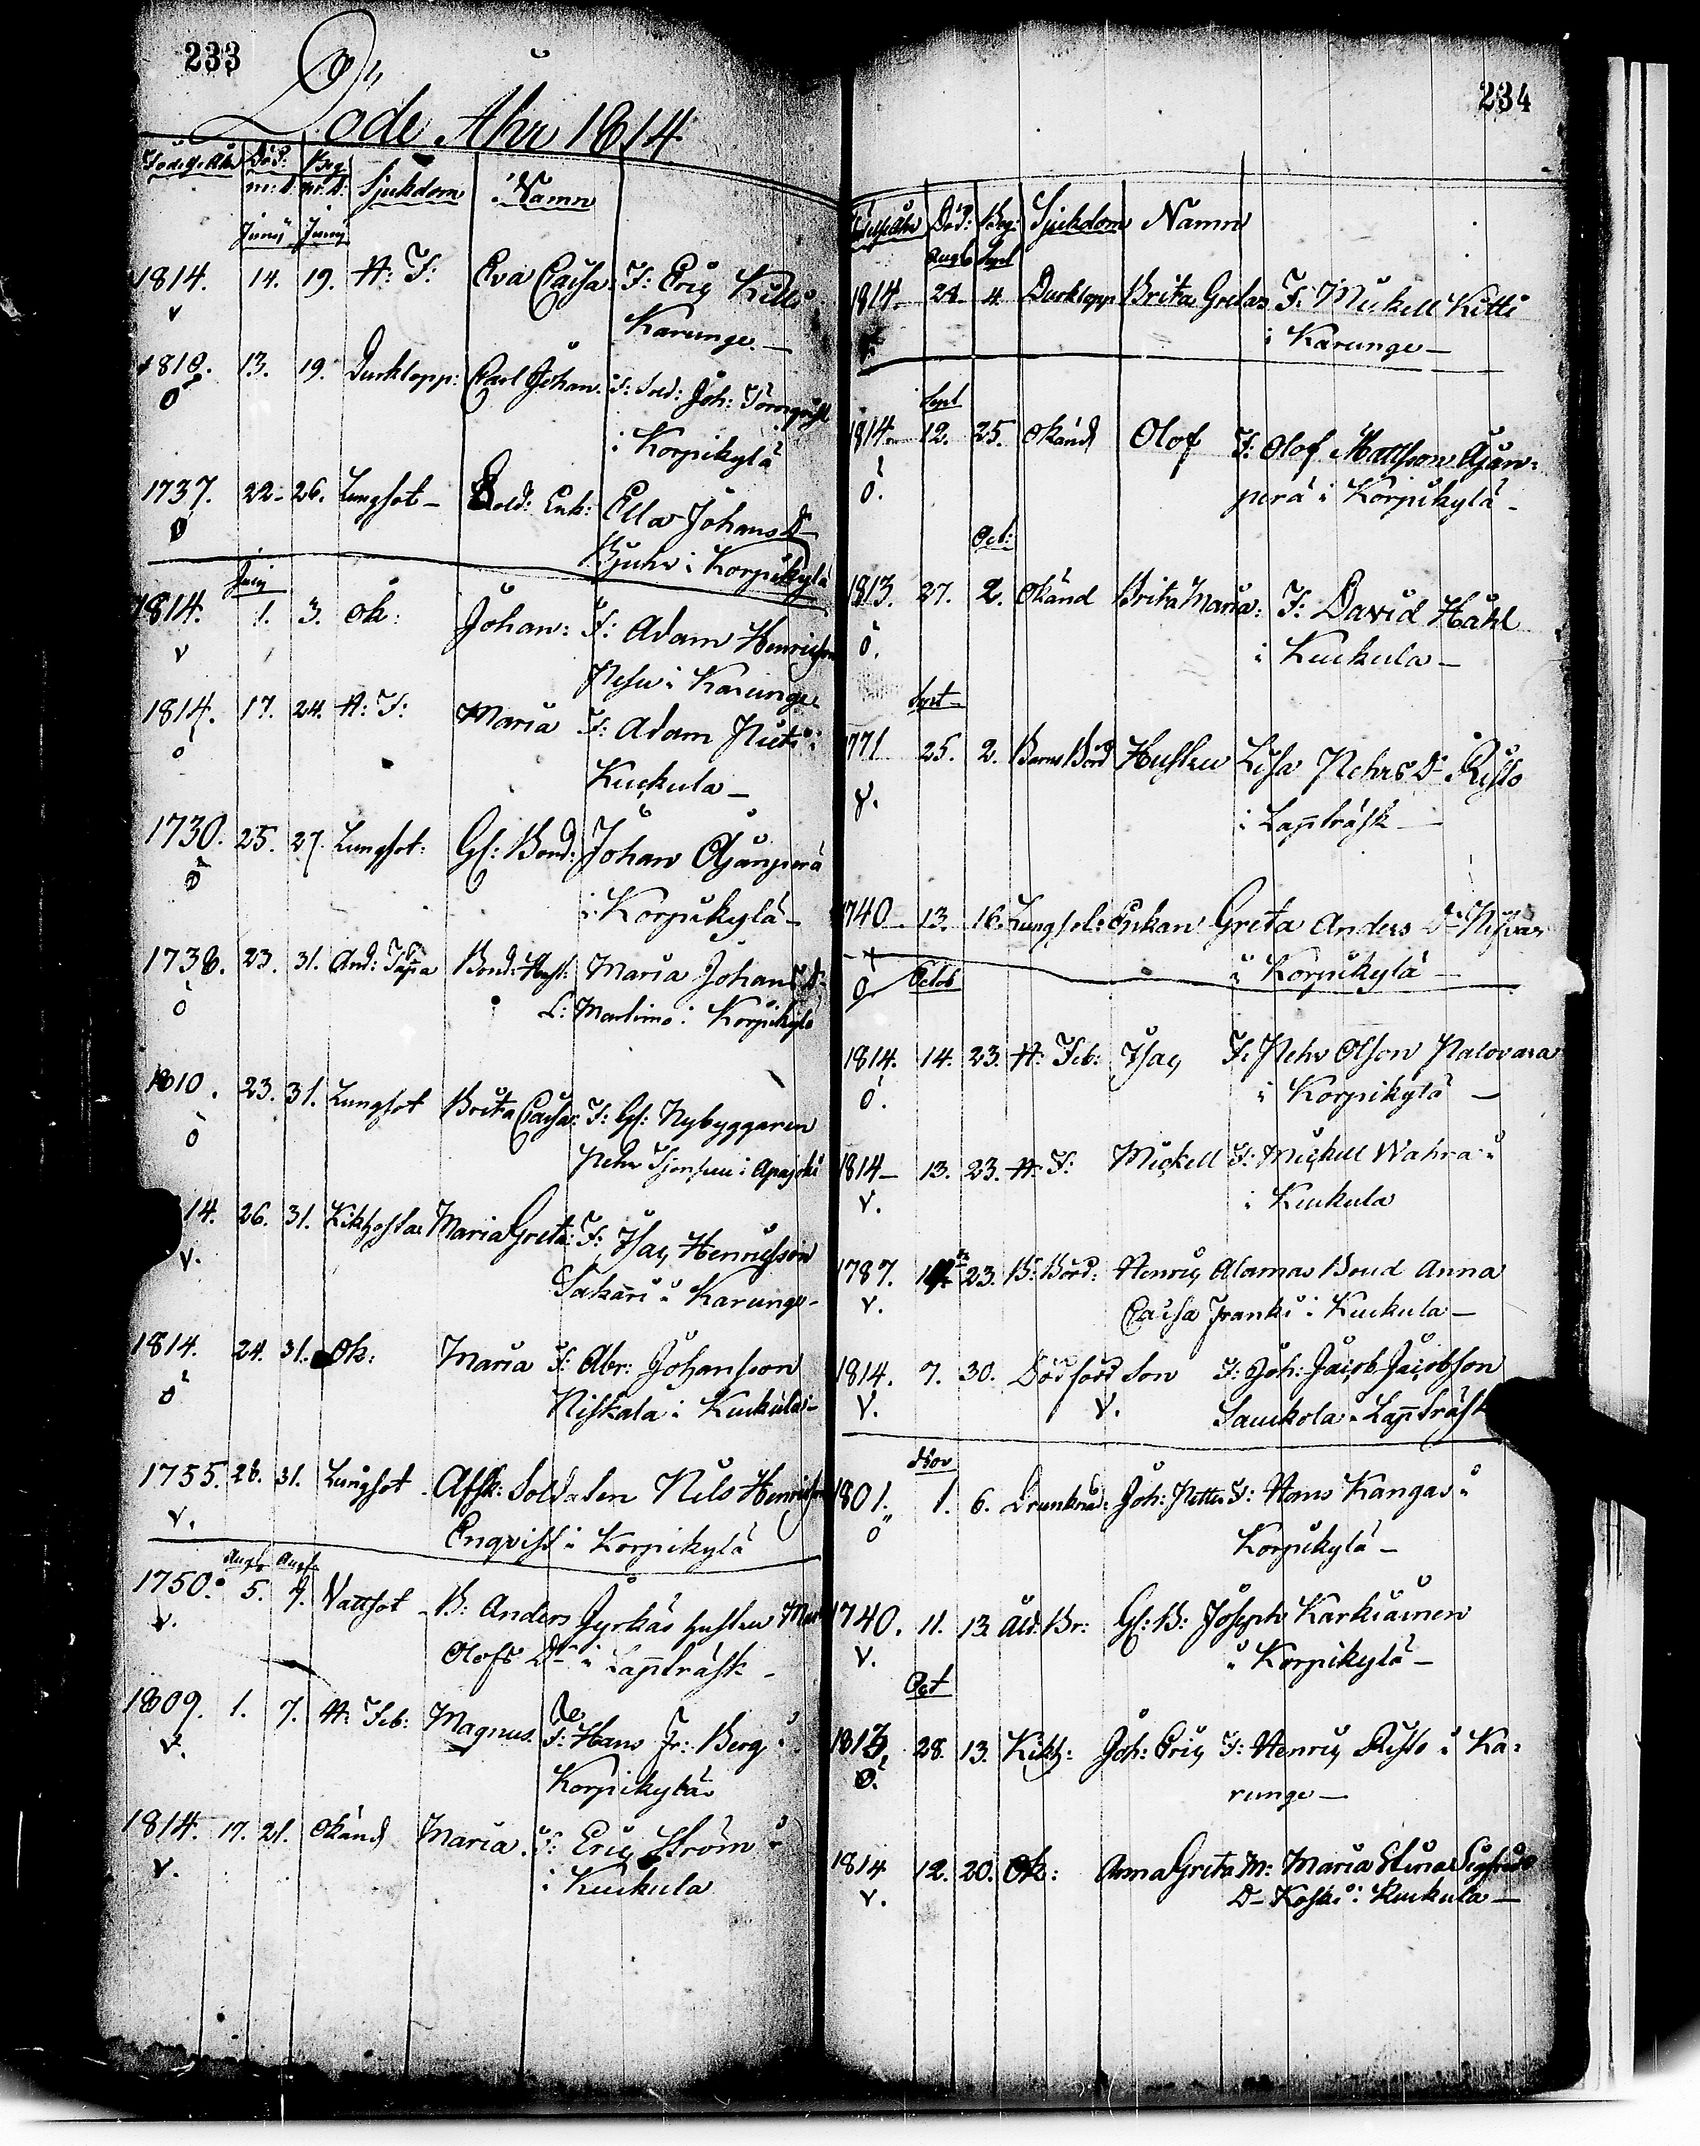 233
Döde Åhr 1814
Födelse Åhr Död: Beg:
m: d: m: d: Sjukdom Namn
Junij Junij
1814. 14. 19. H: F: Eva Caisa F: Eric Kitti
v Karunge. —
1810. 13. 19. Durklopp: Carl Johan: F: Sold: Joh: Törnqvist
ö i Korpikylä
1737. 22 - 26. Lungsot - Sold: Enk: Ella Johans D-
ö i Korpikylä
Julij
1814. 1. 3. Ok: Johan: F: Adam Henricson
v i Karunge
1814. 17. 24. H: F: Maria F: Adam i
ö Kuckula —
1730. 25. 27. Lungsot: Gl: Bond: Johan Äjänperä
ö i Korpikylä -
1738. 23. 31. And: Täppa Bond: Hust: Maria Johans D:
ö L: Martimo i Korpikylä
1810. 23. 31. Lungsot Brita Caisa: F: Gl: Nybyggaren
ö Pehr
14. 26. 31. Kikhosta Maria Greta: F: Isac Henricsson
v. Sakari i Karunge -
1814. 24. 31. Ok: Maria F: Abr: Johansson
ö Niskala i Kuckula -
1755. 28. 31. Lungsot - Afsk: Soldaten Nils Henricson
v. Enqvist i Korpikylä
Aug: Aug:
1750. 5. 7. Vattsot - B: Anders Jyrkäs hustru
v. Olofs Dr i Lappträsk -
1809. 1. 7. H: Feb: Magnus. F: Hans Jr: Berg i
v. Korpikylä
1814. 17. 21. Okänd Maria. F: Eric Ström
v. i Kuckula
234
Födelse Åhr Död: Beg: Sjukdom Namn
Aug: Sept
1814. 28 4. Durklopp Brita Greta F: Mickell Kitti
i Karunge —
Sept
1814. 12. 25. Okänd Olof F: Olof Mattsson Äjän=
ö. perä i Korpikylä -
Oct:
1813. 27. 2. Okänd Brita Maria: F: David Håhl
ö. i Kuckula —
Sept -
1771 25. 2. Barns Börd Hustru Lisa Pehrs Dr Risto
v. i Lappträsk —
1740 13. 16. Lungsot: Enkan Greta Anders Dr
i Korpikylä —
ö Octob
1814. 14. 23. H: Feb: Isac F: Pehr Olson Palovara
ö. i Korpikylä —
1814 - 13. 23. H: F: Mickell F: Mickell Wahra
v. i Kuckula
1787. 23. B: Börd: Henric Alamas Bond Anna
v. Caisa Franki i Kuckula —
1814. 7. 30. Dödförd Son F: Joh: Jacob Jacobson
v. v. Sauckola i Lappträsk
Nov
1801. 1. 6. Drunknad: Joh: Petter F: Hans Kangas i
ö Korpikylä —
1740. 11. 13. Åld: Br: Gl: B: Joseph Karkiainen
v. i Korpikylä —
Oct
1813. 28. 13. Kikh: Joh: Eric F: Henric Risto i Ka=
ö. runge —
1814 12. 20. Ok: Anna Greta M: Maria Stina Sigfrids
v. D- Koski i Kuckula —